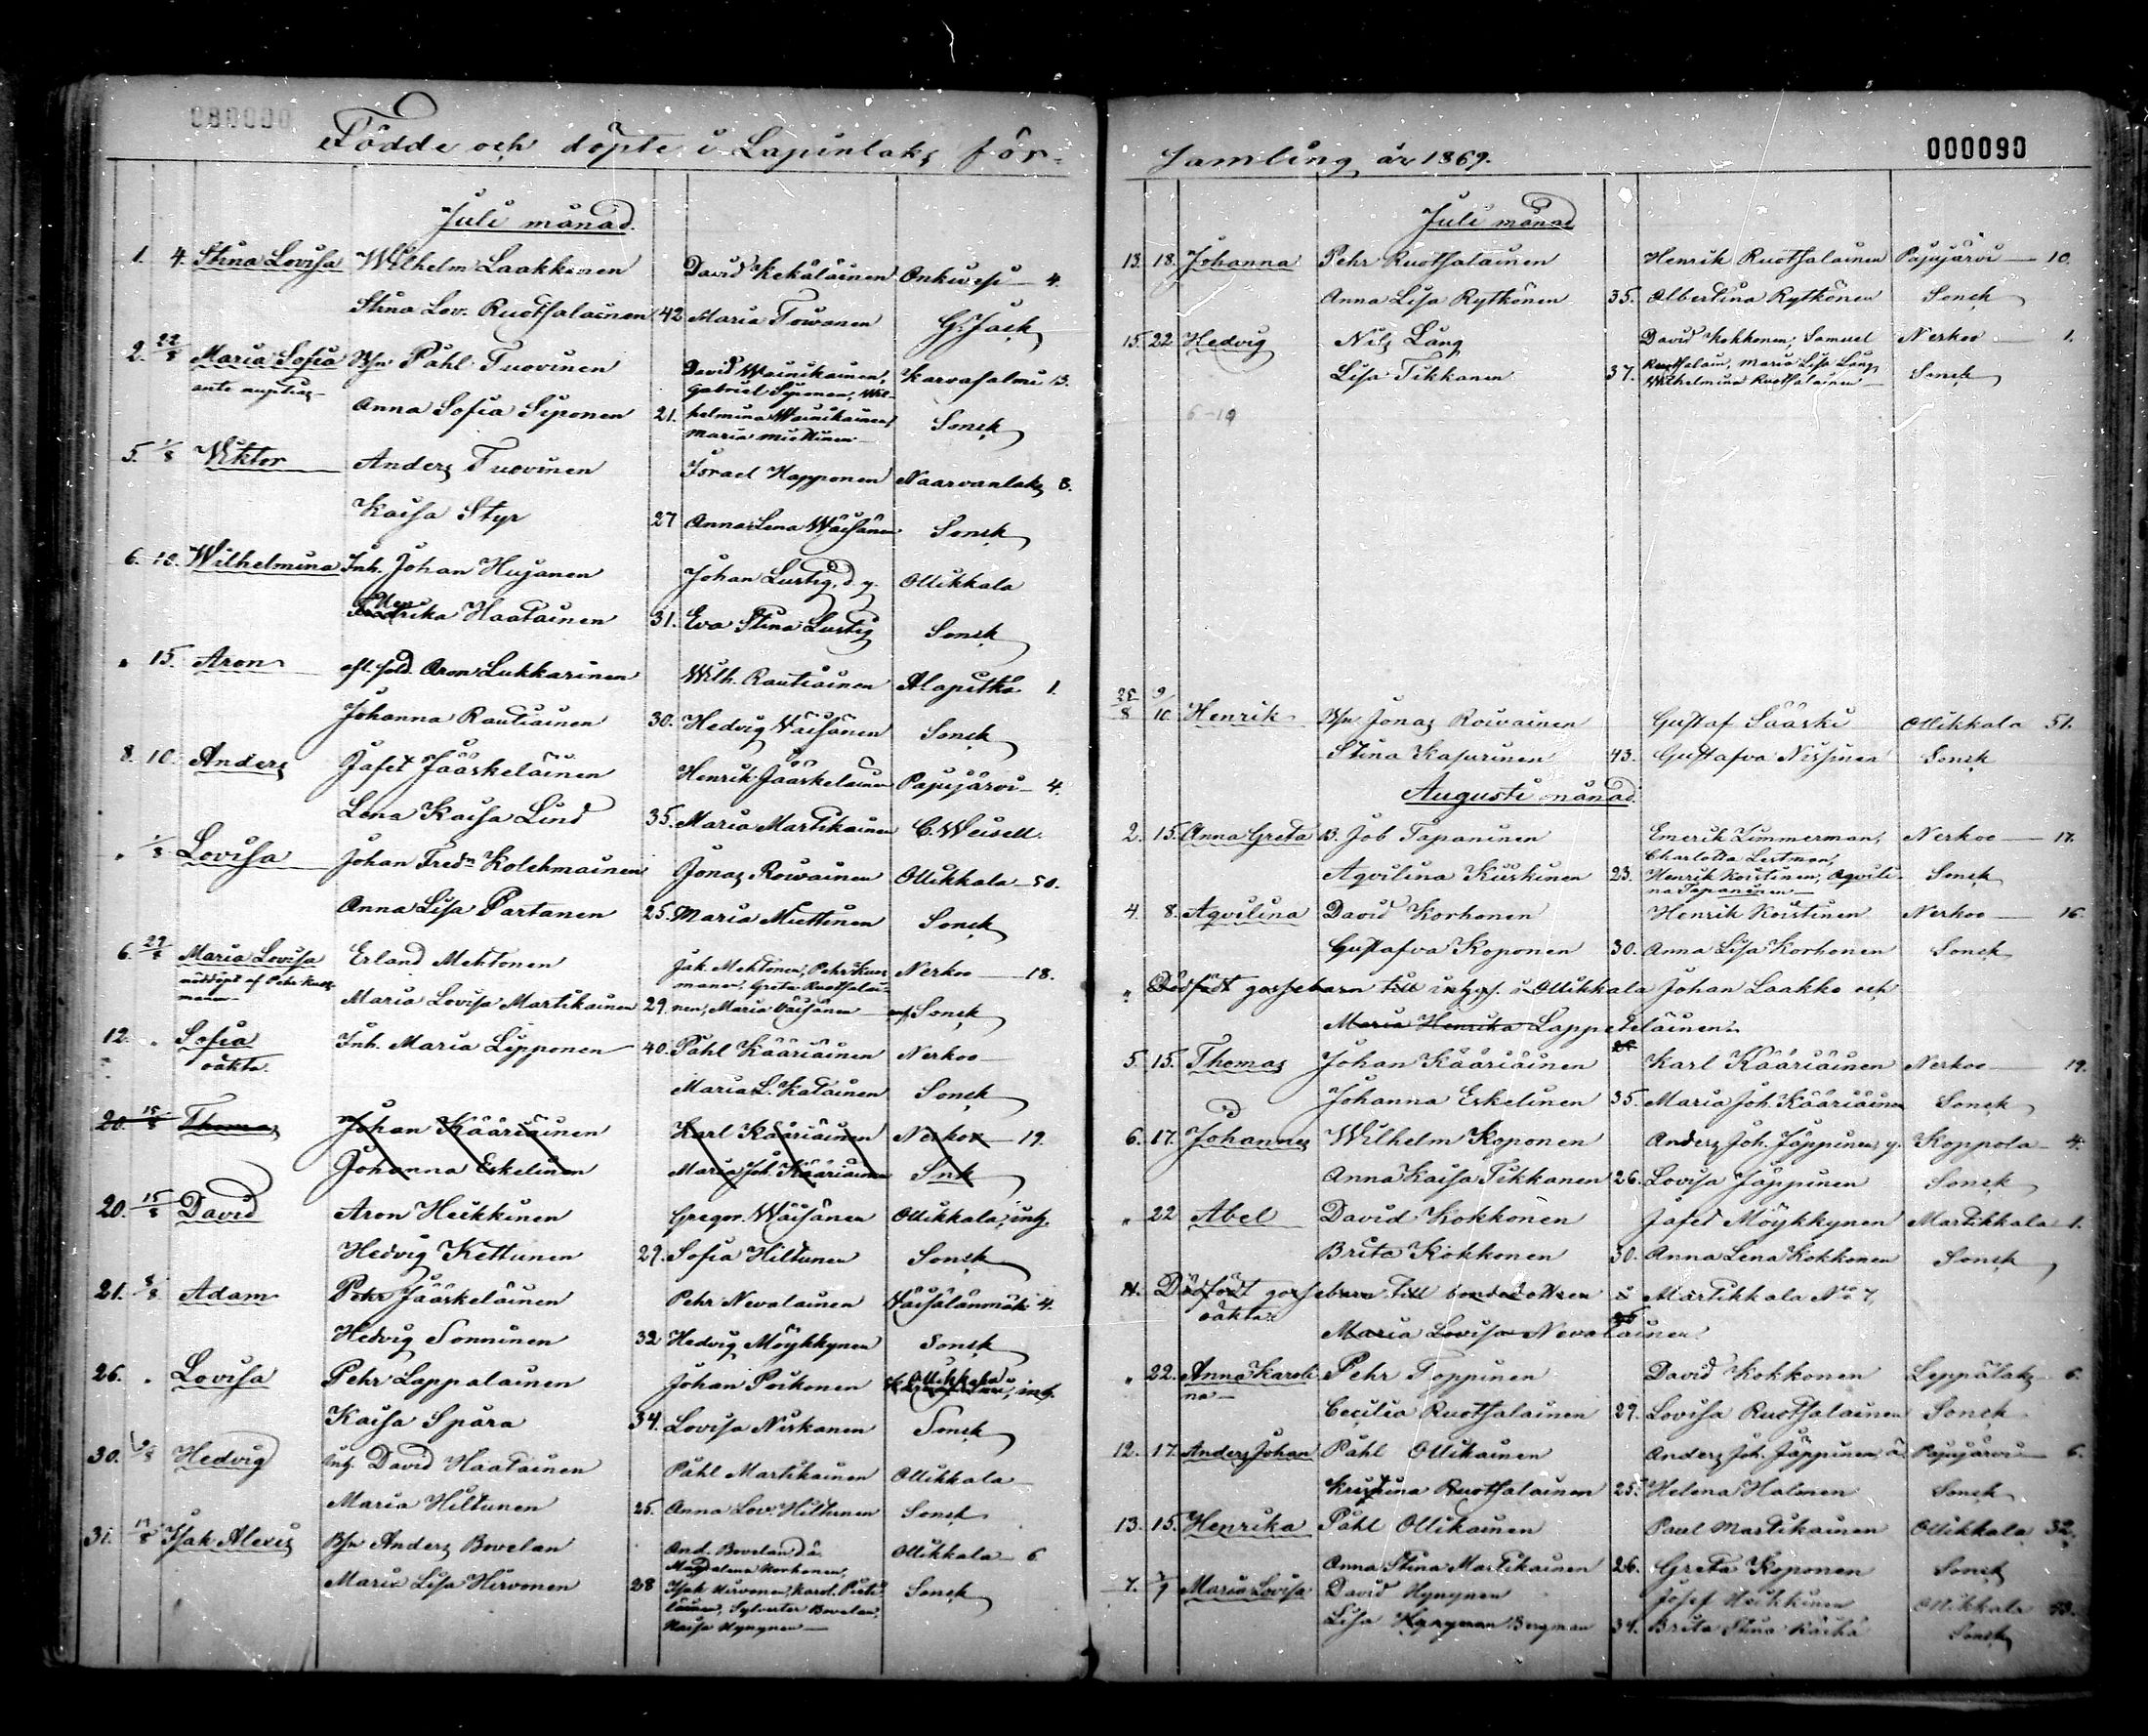 Födde och döpte i Lapinlaks för-
Juli månad.
1. 4. Stina Lovisa Wilhelm Laakkonen David Kekäläinen Onkivesi 4.
Stina Lov. Ruotsalainen 42 Maria Toivonen G. Jack
2. 22/8 Maria Sofia Bsn Påhl Tuovinen David Wainikainen, Karvasalmi 13.
ante nuptias Gabriel Siponen, Wil-
Anna Sofia Siponen 21. helmina Wainikainen, Sonck
Maria Miettinen
5. 1/8 Viktor Anders Tuovinen Israel Happonen Naarvanlaks 8.
Kaisa Styr 27 Anna Lena Wäisänen Sonck
6. 18. Wilhelmina Inh. Johan Hujanen Johan Lustig, d. y. Ollikkala
Haatainen 31. Eva Stina Lustig Sonck
" 15. Aron Aron Lukkarinen Wilh. Rautiainen Alapitkä 1.
Johanna Rautiainen 30. Hedvig Väisänen Sonck
8. 10. Anders Jafet Jääskeläinen Henrik Jääskeläinen Pajujärvi 4.
Lena Kaisa Lind 35. Maria Martikainen C. Weisell
" 1/8 Lovisa Johan Fredr. Kolehmainen Jonas Roivainen Ollikkala 50.
Anna Lisa Partanen 25. Maria Miettinen Sonck
6. 29/8 Maria Lovisa Erland Mehtonen Jak. Mehtonen, Pehr Kus- Nerkoo 18.
nöddöpt af Pehr Kuos- manen, Greta Ruotsalai-
manen Maria Lovisa Martikainen 29. nen, Maria Väisänen Sonck
12. " Sofia Inh. Maria Lipponen 40. Påhl Kääriäinen Nerkoo
oäkta. Maria L. Katainen Sonck
20. 15/8 Thomas Johan Kääriäinen Karl Kääriäinen Nerkoo 19.
Johanna Eskelinen Maria Joh. Kääriäinen Snk
20. 15/8 David Aron Heikkinen Gregor. Wäisänen Ollikkala, inh.
Hedvig Kettunen 29. Sofia Hiltunen Sonck
21. 8/8 Adam Petr Jääskeläinen Pehr Nevalainen Väisälänmäki 4.
Hedvig Sonninen 32 Hedvig Möykkynen Sonck
26. " Lovisa Pehr Lappalainen Johan Poikonen Ollikkala, inh.
Kaisa Spåra 34. Lovisa Niskanen Sonck
30. /8 Hedvig Inh. David Haatainen Påhl Martikainen Ollikkala
Maria Hiltunen 25. Anna Lov. Hiltunen Sonck
31. /8 Isak Alexis Bsn Anders Bovelan And. Bovelan d. ä. Ollikkala 6
Magdalena Korhonen,
Maria Lisa Hirvonen 28 Isak Hirvonen, Karol. Sonck
Sylvester Bovelan,
Kaisa Hynynen
000090
samling år 1869.
Juli månad
13. 18. Johanna Pehr Ruotsalainen Henrik Ruotsalainen Pajujärvi 10.
Anna Lisa Rytkönen 35. Albertina Rytkönen Sonck
15. 22 Hedvig Nils Lång David Kokkonen, Samuel Nerkoo 1.
Lisa Tikkanen 37. Ruotsalain, Maria Lisa Lång, Sonck
Wilhelmina Ruotsalainen
6-19
28/8 9/10 Henrik Bsn Jonas Roivainen Gustaf Sääski Ollikkala 51.
Stina Kasurinen 43. Gustafva Nissinen Sonck
Augusti månad.
2. 15. Anna Greta B. Job Tapaninen Emerik Zimmerman, Nerkoo 17.
Charlotta Lestman,
Aqvilina Kuskinen 23. Henrik Koistinen, Aqvili- Sonck
na Tapaninen
4. 8. Aqvilina David Korhonen Henrik Koistinen Nerkoo 16.
Gustafva Koponen 30. Anna Lisa Korhonen Sonck
" Dödfödt gossebarn till inhys. i Ollikkala Johan Laakko och
Maria Henrika Lappeteläinen
5. 15. Thomas Johan Kääriäinen Karl Kääriäinen Nerkoo 19.
Johanna Eskelinen 35. Maria Joh. Kääriäinen Sonck
6. 17. Johannes Wilhelm Koponen Anders Joh. Jäppinen y. Koppola 4.
Anna Kaisa Tikkanen 26. Lovisa Jäppinen Sonck
" 22 Abel David Kokkonen Jafet Möykkynen Martikkala 1.
Brita Kokkonen 30. Anna Lena Kokkonen Sonck
11. Dödfödt gossebarn till bondedottren i Martikkala No 7,
oäkta: Maria Lovisa Nevalainen
" 22. Anna Karoli- Pehr Toppinen David Kokkonen Leppälaks 6.
na Cecilia Ruotsalainen 29. Lovisa Ruotsalainen Sonck
12. 17. Anders Johan Påhl Ollikainen Anders Joh. Jäppinen ä. Pajujärvi 6.
Kristina Ruotsalainen 25. Helena Halonen Sonck
13. 15. Henrika Påhl Ollikainen Paul Martikainen Ollikkala 32.
Anna Stina Martikainen 26. Greta Koponen Sonck
7. /9 Maria Lovisa David Hynynen Josef Heikkinen Ollikkala 43.
Lisa Bergman 34. Brita Stina Räihä Sonck